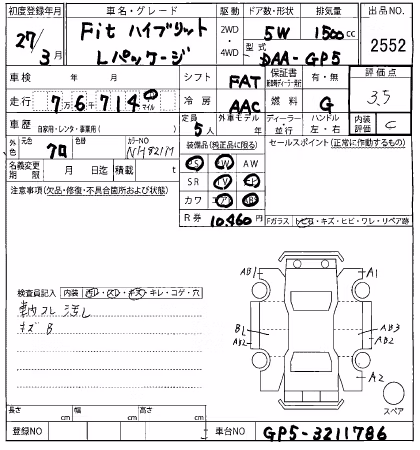 初度登録年月 車名・グレード 駆動 ドア数・形状 排気量 出品NO.
27/3月 Fit ハイブリット Lパッケージ 2WD・4WD 5W 1500cc 2552
型式 DAA-GP5
車検 年 月 シフト FAT 保証書 有・無 評価点 3.5
走行 7万6千714 マイル 冷房 AAC 燃料 G
車歴 自家用・レンタ・事業用( ) 定員 5人 外車モデル 年 ディーラー・並行 ハンドル 左・右 内装評価 C
外色 元色 クロ 色替 カラーNO NH821M 装備品(純正品に限る) セールスポイント(正常に作動するもの)
名義変更期限 月 日迄 積載 t PS PW AW
注意事項(欠品・修復・不具合箇所および状態) SR ナビ TV
カワ エアB ABS
R券 10,460円 Fガラス トビ石・キズ・ヒビ・ワレ・リペア跡
AB1 A1
検査員記入 内装 汚レ・スレ・キズ・キレ・コゲ・穴
B1 AB3
AB2 AB2
A2
スペア
長さ cm 幅 cm 高さ cm
登録NO 車台NO GP5-3211786